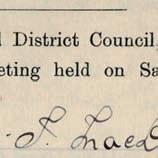 d District Council,
eting held on Sa
. T. Mac